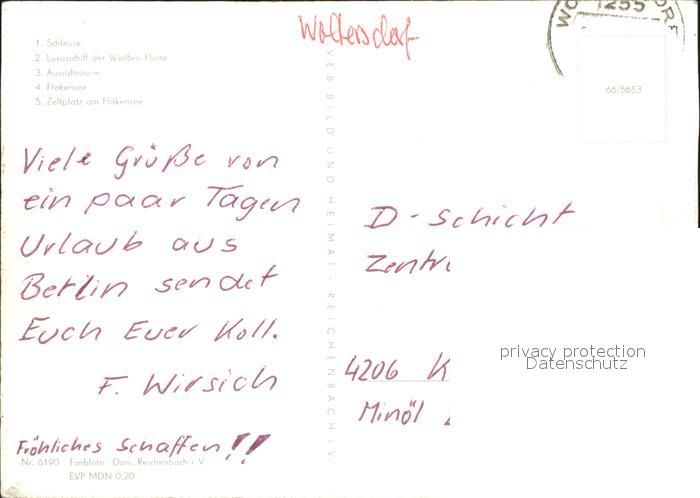 Woltersdorf
1255
1. Schleuse
2. Luxusschiff der Weißen Flotte
3. Aussichtsturm
4. Flakensee
5. Zeltplatz am Flakensee
66/5653
VEB BILD UND HEIMAT, REICHENBACH i. V.
Viele Grüße von
ein paar Tagen
Urlaub aus
Berlin sendet
Euch Euer Koll.
F. Wirsich
Fröhliches Schaffen!!
D-Schicht
Zentr
4206 K
Minöl
privacy protection
Datenschutz
Nr. 6190 Farbfoto: Darr, Reichenbach i. V.
EVP MDN 0,20